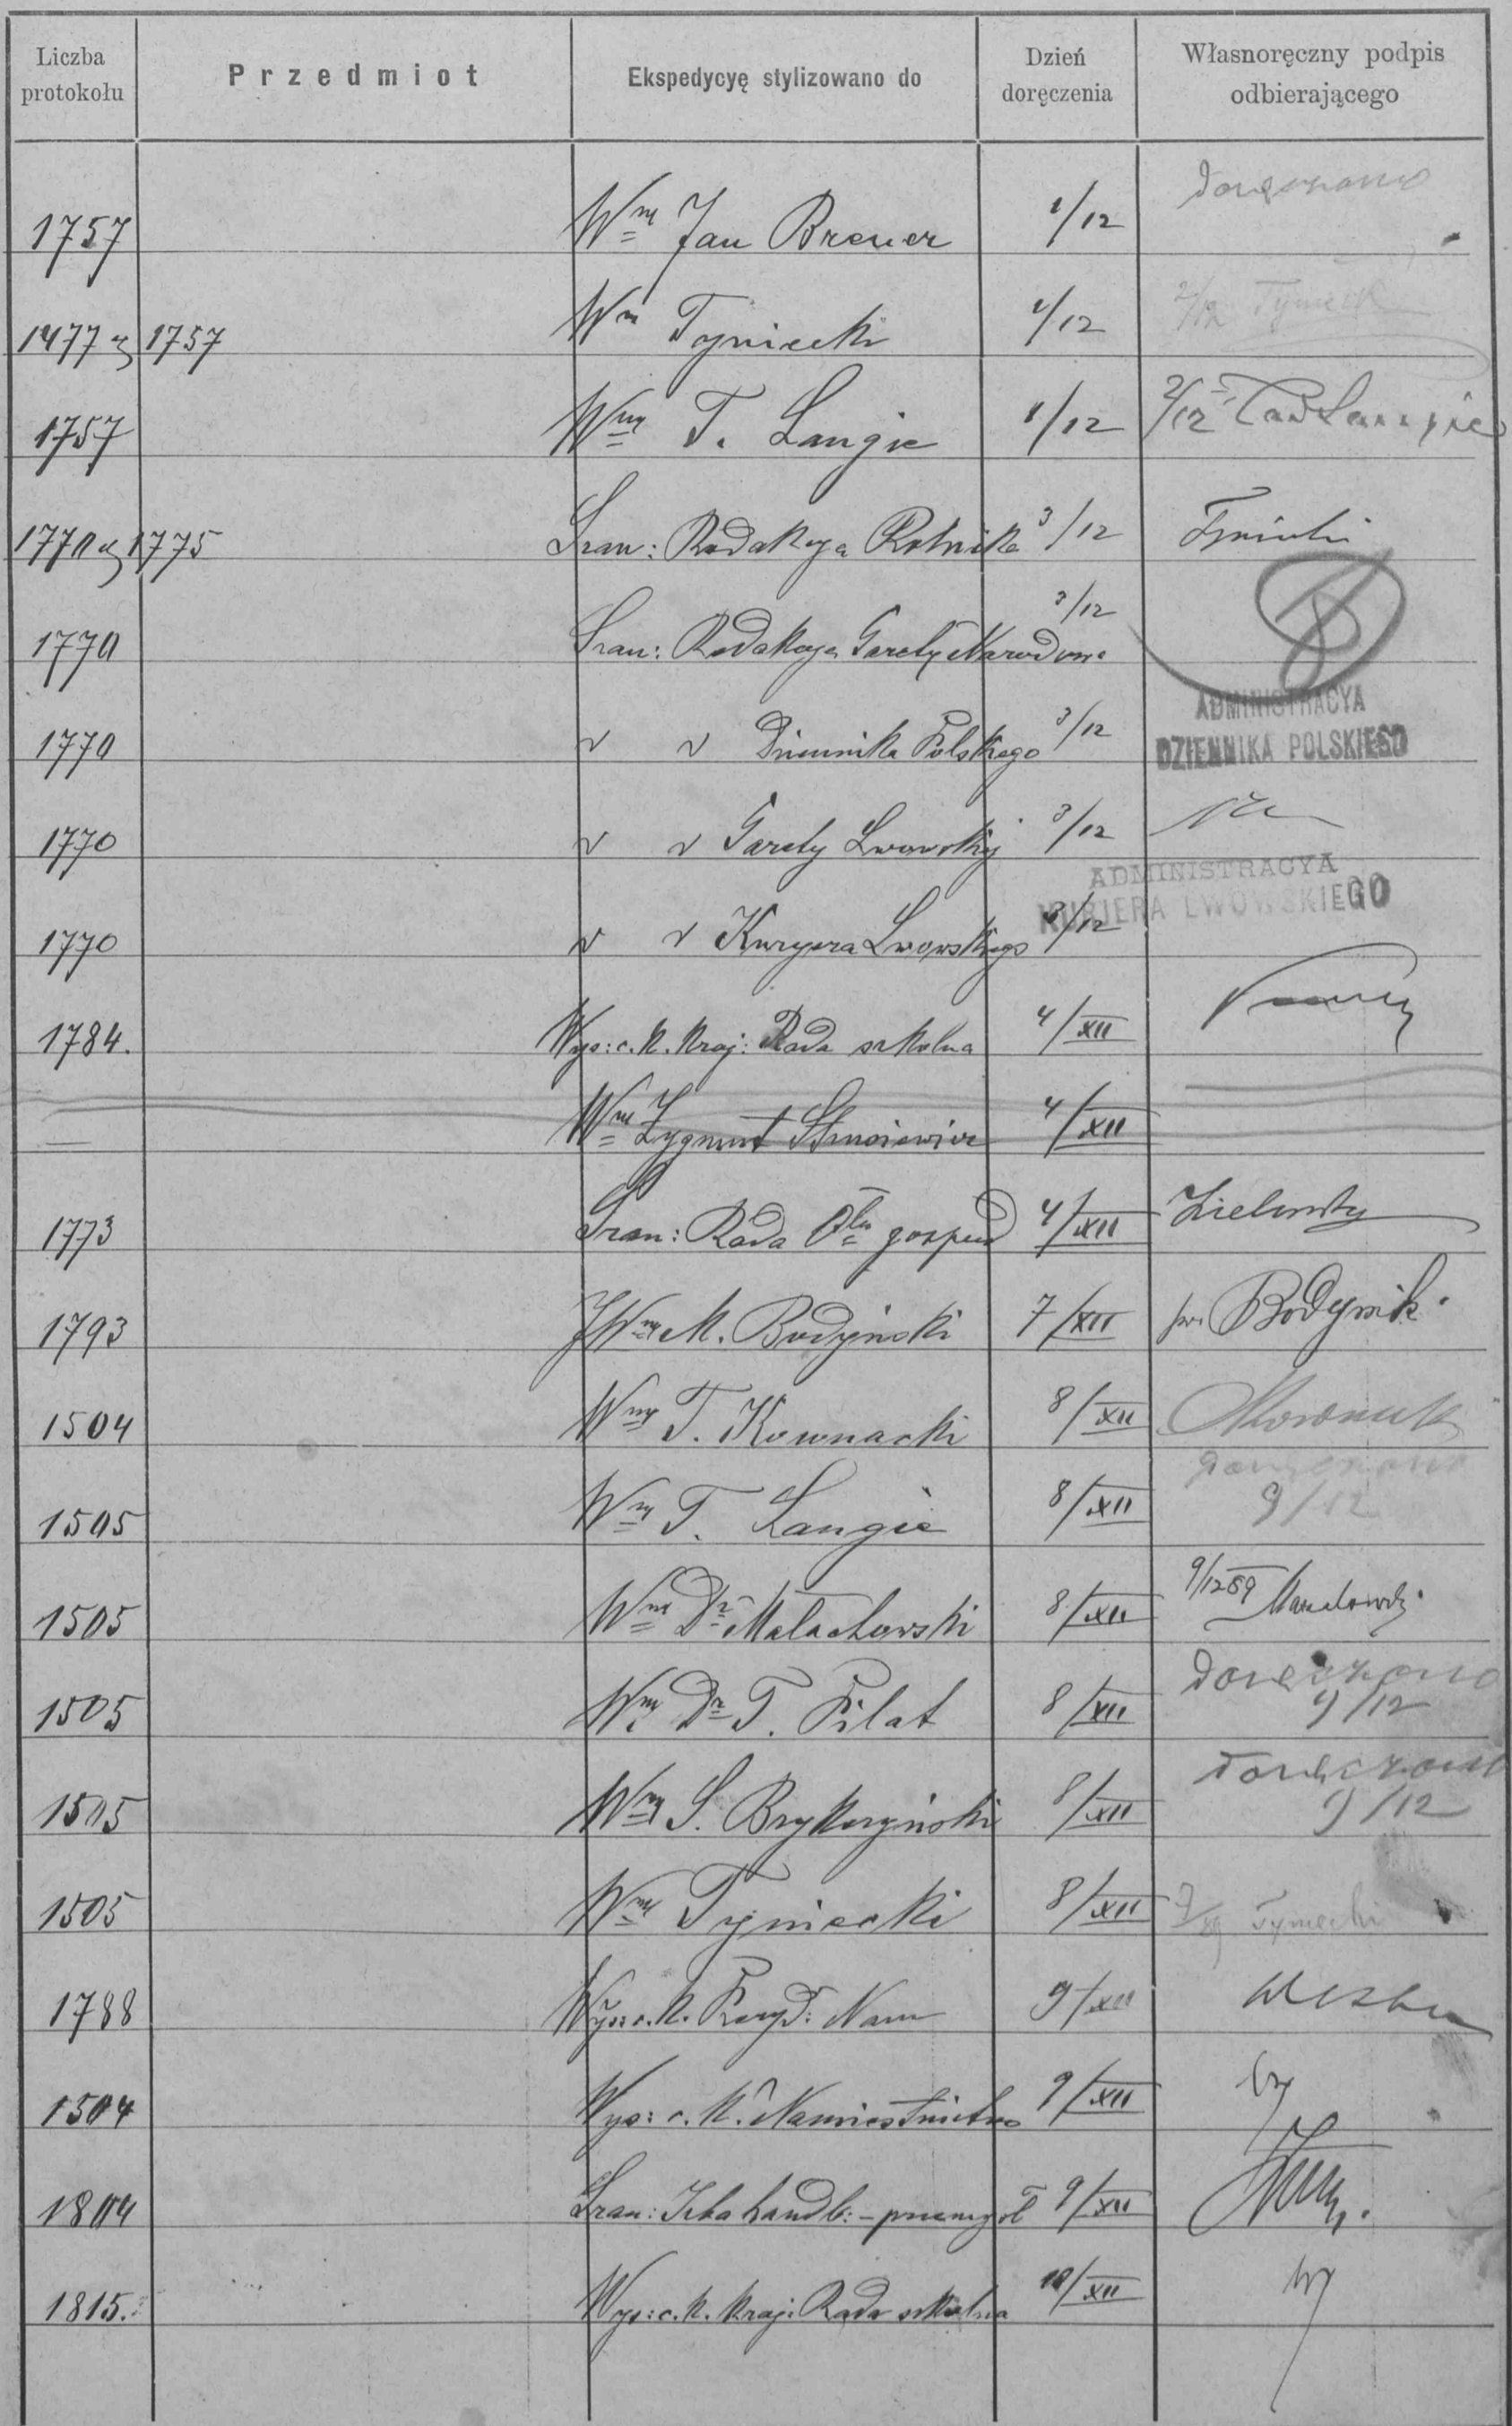 Liczba protokołu | Przedmiot | Ekspedycyę stylizowano do | Dzień doręczenia | Własnoręczny podpis odbierającego
1757 | | Wny Jan Breuer | 1/12 | doręczono
1477 z | 1757 | Wny Tyniecki | 1/12 | 2/12 Tyniecki
1757 | | Wny T. Langie | 1/12 | 2/12 Tad Langie
1770 z | 1775 | Szan: Redakcya Rolnika | 3/12 | Tyniecki
1770 | | Szan: Redakcya Gazety Narodowe | 3/12
1770 | | v v Dziennika Polskiego | 3/12 | ADMINISTRACYA DZIENNIKA POLSKIEGO
1770 | | v v Gazety Lwowskiej | 3/12
1770 | | v v Kuryera Lwowskiego | 3/12 | ADMINISTRACYA KURJERA LWOWSKIEGO
1784. | | Wys: c. k. kraj: Rada szkolna | 4/XII
Wny Zygmunt | 4/XII
1773 | | Szan: Rada Oła gospod | 4/XII
1793 | | JWny M. Bodyński | 7/XII
1504 | | Wny T. Kownacki | 8/XII
1505 | | Wny T. Langie | 8/XII | doręczono 9/12
1505 | | Wny Dr Małachowski | 8/XII | 9/12 89
1505 | | Wny Dr T. Pilat | 8/XII | doręczono 9/12
1505 | | Wny S. Brykczyński | 8/XII | doręczono 9/12
1505 | | Wny Tyniecki | 8/XII | Tyniecki
1788 | | Wys: c. k. Prezyd: Nam | 9/XII
1504 | | Wys: c. k. Namiestnictwo | 9/XII
1804 | | Szan: Izba handl: – przemysł | 9/XII
1815. | | Wys: c. k. kraj: Rada szkolna | 10/XII